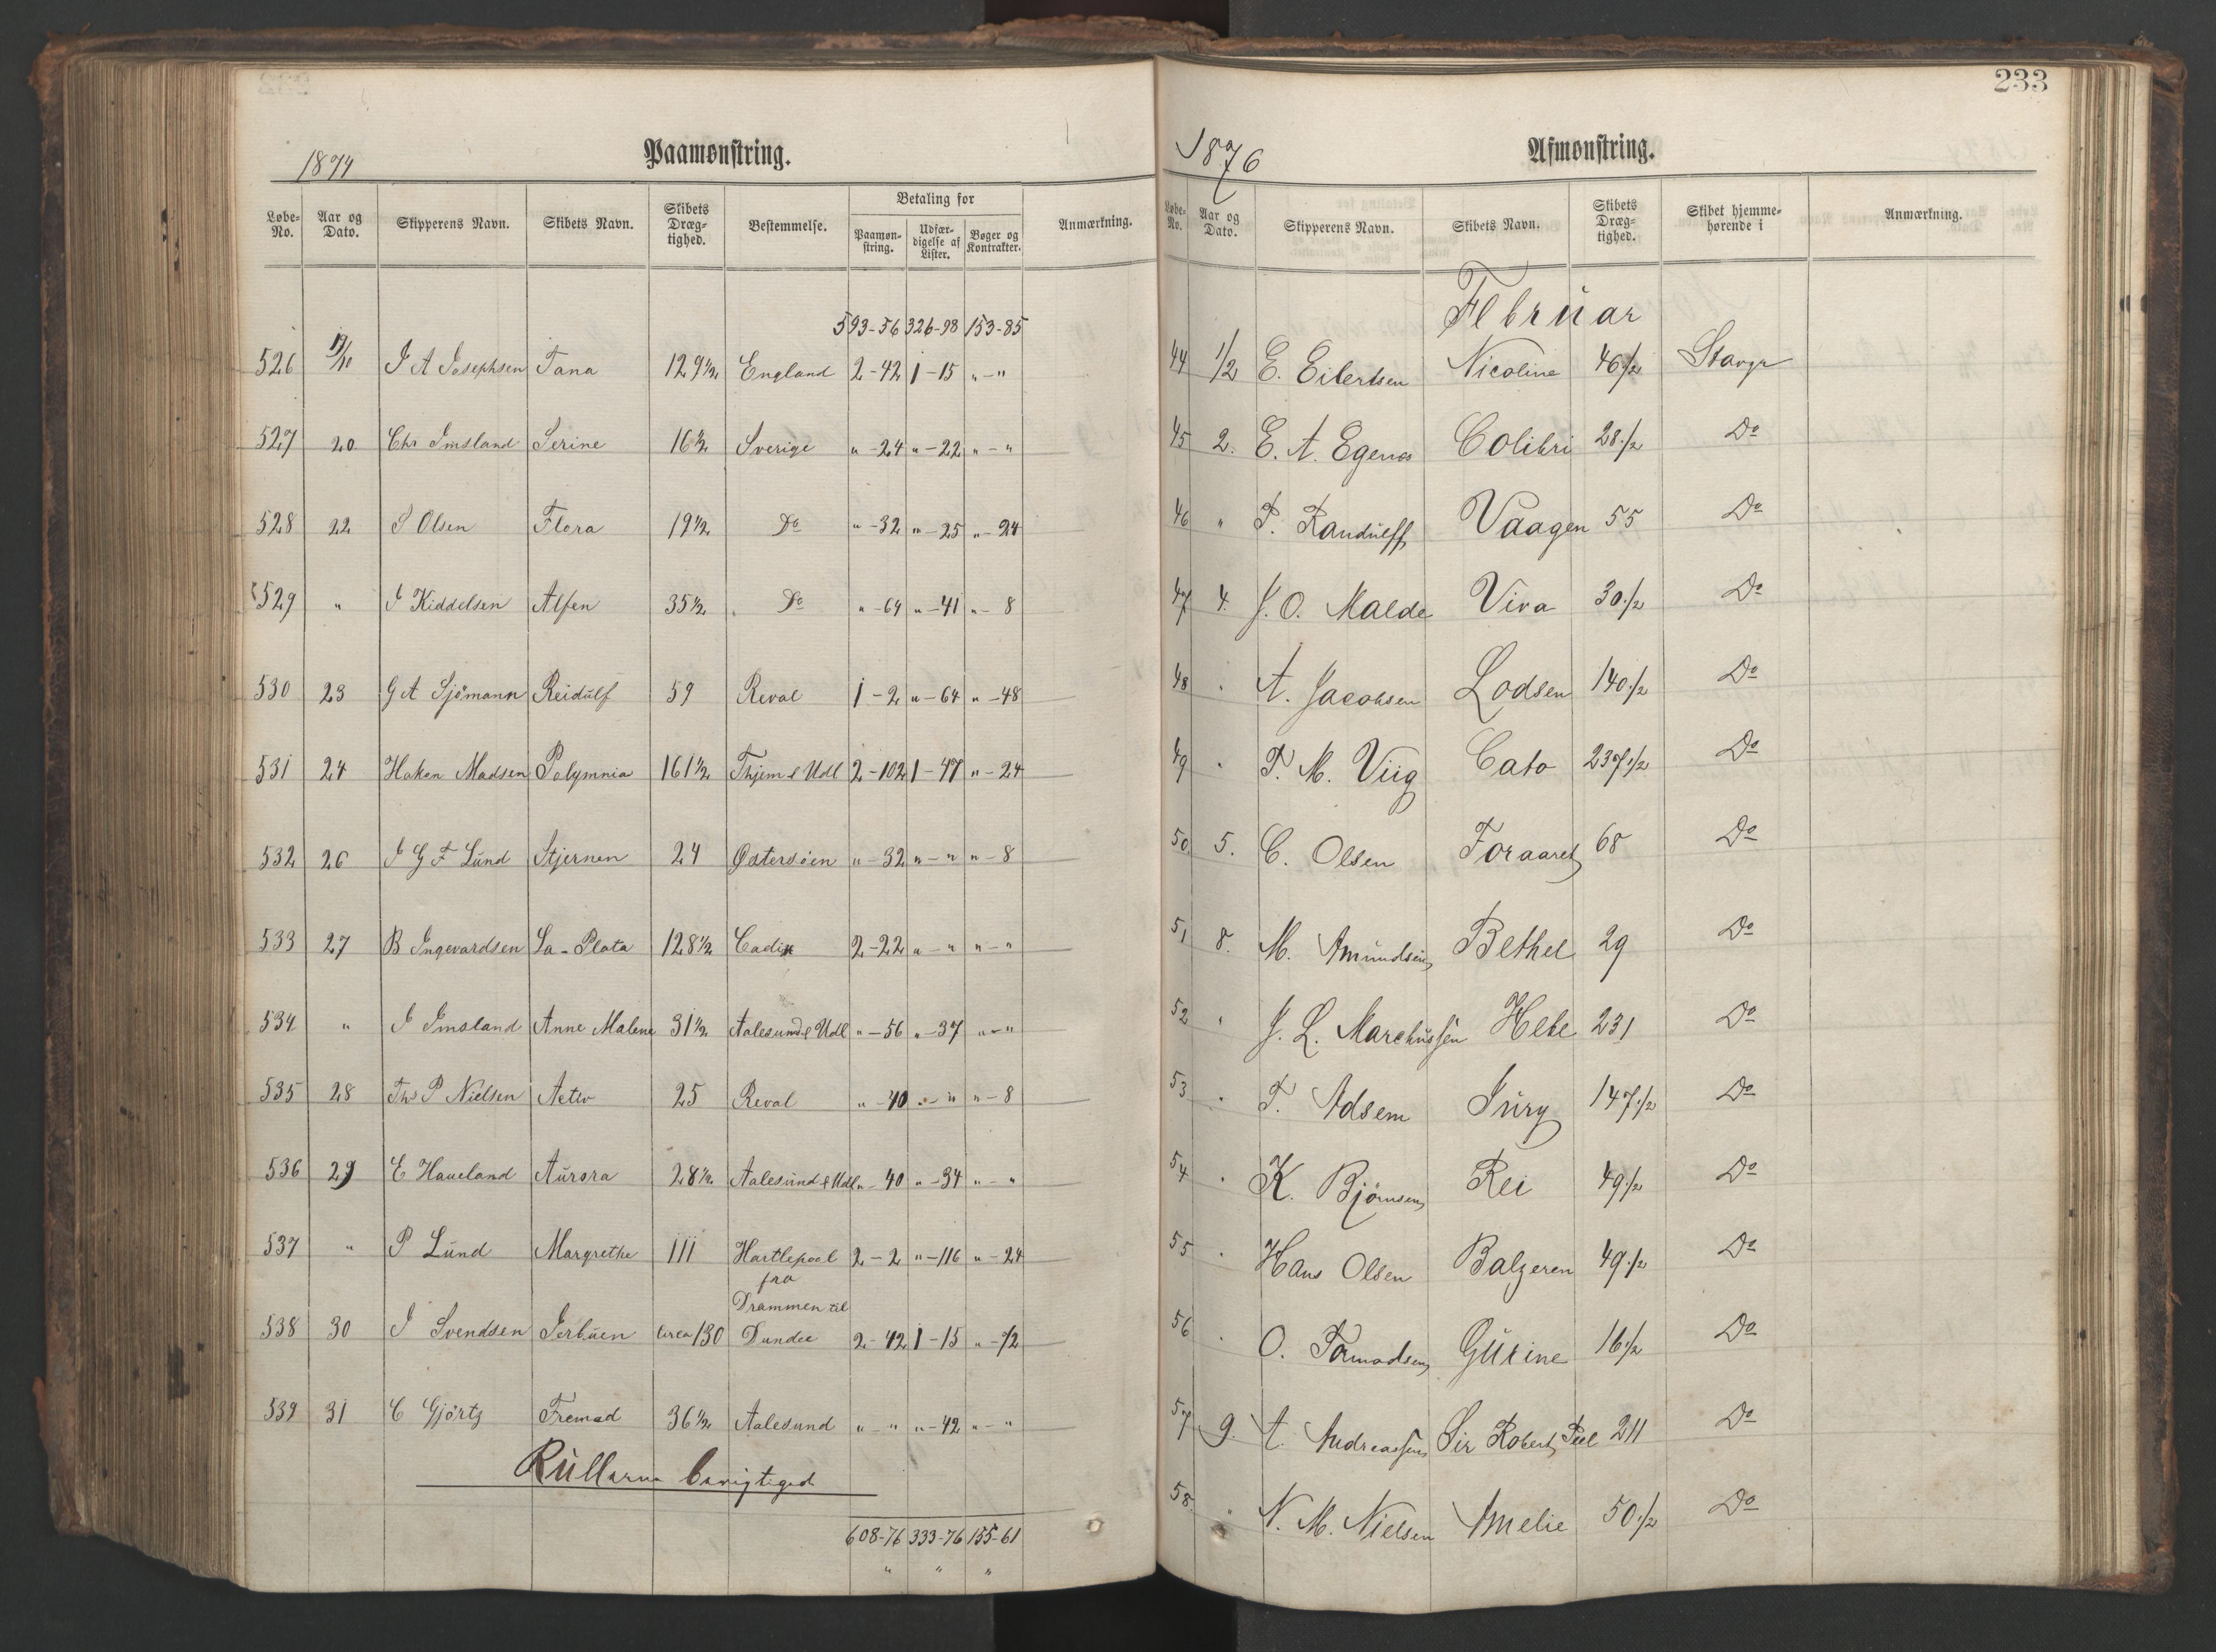 1874
Paamønstring.
Løbe-No. Aar og Dato. Skipperens Navn. Skibets Navn. Skibets Dræg-tighed. Bestemmelse. Betaling for Paamøn-string. Udfær-digelse af Lister. Bøger og Kontrakter. Anmærkning.
593-56 326-98 153-85
526 19/10 J A Josephsen Tana 129 1/2 England 2-42 1-15 "-"
527 20 Chr Imsland Serine 16 1/2 Sverige "-24 "-22 "-"
528 22 S Olsen Flora 19 1/2 Do "-32 "-25 "-24
529 " J Kiddelsen Alfen 35 1/2 Do "-64 "-41 "-8
530 23 G A Sjömann Reidulf 59 Reval 1-2 "-64 "-48
531 24 Hakon Madsen Polymnia 161 1/2 Thjem & Udl 2-102 1-47 "-24
532 26 J G F Lund Stjernen 24 Østersøen "-32 "-" "-8
533 27 B Ingevardsen La-Plata 128 1/2 Cadix 2-22 "-" "-"
534 " J Imsland Anne Malene 31 1/2 Aalesund & Udl "-56 "-37 "-"
535 28 Ths P Nielsen Activ 25 Reval "-40 "-" "-8
536 29 E Haueland Aurora 28 1/2 Aalesund & Udl "-40 "-34 "-"
537 " P Lund Margrethe 111 Hartlepool 2-2 "-116 "-24
fra
Drammen til
538 30 J Svendsen Jerbuen circa 130 Dundee 2-42 1-15 "-72
539 31 C Gjörtz Fremad 36 1/2 Aalesund "-" "-42 "-"
Rullerne berigtiged
608-76 333-76 155-61
" " "
233
1876
Afmønstring.
Løbe-No. Aar og Dato. Skipperens Navn. Skibets Navn. Skibets Dræg-tighed. Skibet hjemme-hørende i Anmærkning.
Februar
44 1/2 E. Eilertsen Nicoline 46 1/2 Stavgr
45 2. E. A. Egenes Colibri 28 1/2 Do
46 " T. Randulff Vaagen 55 Do
47 4. J. O. Malde Viva 30 1/2 Do
48 " A. Jacobsen Lodsen 140 1/2 Do
49 " T. M. Viig Cato 237 1/2 Do
50 5. C. Olsen Foraaret 68 Do
51 8. M. Amundsen Bethel 29 Do
52 " J. L. Marchussen Hebe 231 Do
53 " T. Adsem Jury 147 1/2 Do
54 " K. Björnsen Rei 49 1/2 Do
55 " Hans Olsen Balzeren 49 1/2 Do
56 " O. Tormodsen Gurine 16 1/2 Do
57 9. A. Andreassen Sir Robert Peel 211 Do
58. " N. M. Nielsen Amelie 50 1/2 Do